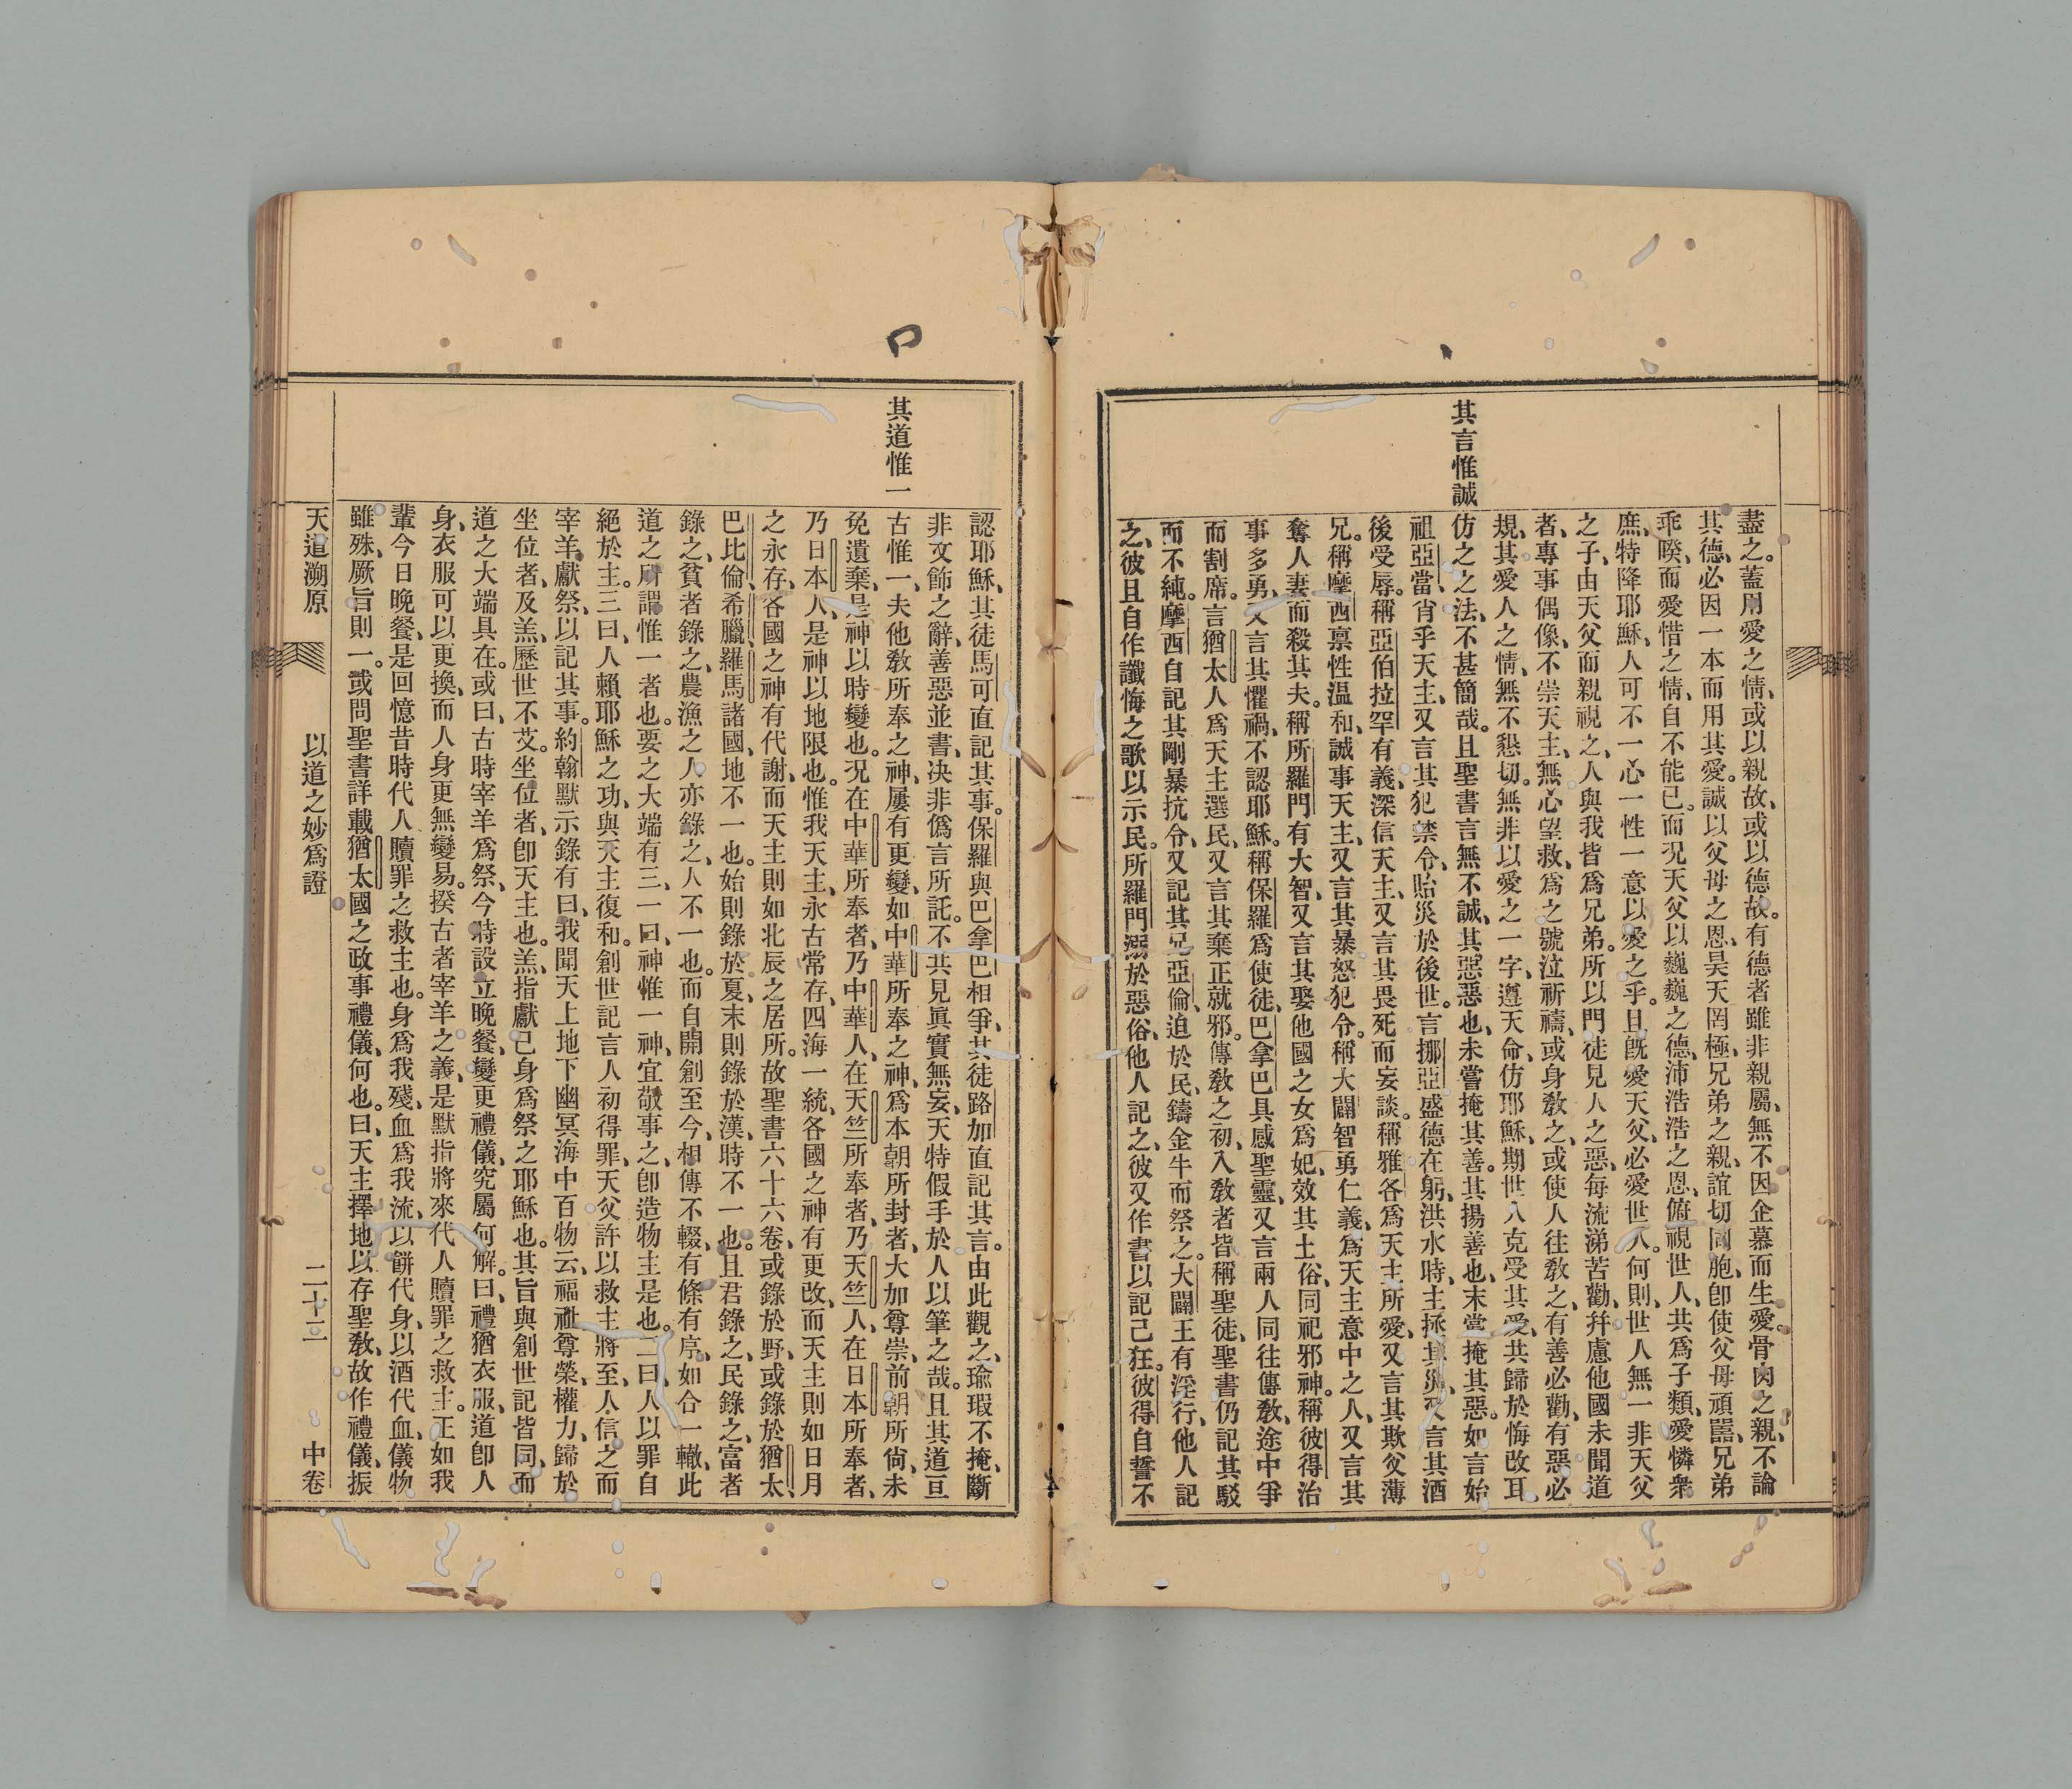 其言惟誠
盡之。蓋用愛之情、或以親故、或以德故。有德者雖非親屬、無不因企慕而生愛。骨肉之親、不論
其德、必因一本而用其愛。誠以父母之恩、昊天罔極、兄弟之親、誼切同胞、卽使父母頑嚚、兄弟
乖睽、而愛惜之情、自不能已。而况天父以巍巍之德、沛浩浩之恩、俯視世人、共爲子類、愛憐衆
庶、特降耶穌、人可不一心一性一意以愛之乎。且旣愛天父、必愛世人。何則世人無一非天父
之子、由天父而親視之、人與我皆爲兄弟。所以門徒見人之惡、每流涕苦勸、幷慮他國未聞道
者、專事偶像、不崇天主、無心望救、爲之號泣祈禱、或身敎之、或使人往敎之、有善必勸、有惡必
規、其愛人之情、無不懇切。無非以愛之一字、遵天命、仿耶穌、期世人克受其愛、共歸於悔改耳、
仿之之法、不甚簡哉。且聖書言無不誠、其惡惡也、未嘗掩其善。其揚善也、未嘗掩其惡。如言始
祖亞當、肖乎天主、又言其犯禁令、貽災於後世。言挪亞盛德在躬、洪水時、主拯其災、又言其酒
後受辱。稱亞伯拉罕有義、深信天主、又言其畏死而妄談。稱雅各爲天主所愛、又言其欺父薄
兄。稱摩西禀性温和、誠事天主、又言其暴怒犯令。稱大闢智勇仁義、爲天主意中之人、又言其
奪人妻而殺其夫。稱所羅門有大智、又言其娶他國之女爲妃、效其土俗、同祀邪神。稱彼得治
事多勇、又言其懼禍、不認耶穌。稱保羅爲使徒、巴拿巴具感聖靈、又言兩人同往傳敎、途中爭
而割席。言猶太人爲天主選民、又言其棄正就邪。傳敎之初、入敎者皆稱聖徒、聖書仍記其駁
而不純。摩西自記其剛暴抗令、又記其兄亞倫、迫於民、鑄金牛而祭之。大闢王有淫行、他人記
之、彼且自作讖悔之歌以示民。所羅門溺於惡俗、他人記之、彼又作書以記己狂。彼得自誓不
其道惟一
認耶穌、其徒馬可直記其事。保羅與巴拿巴相爭、其徒路加直記其言。由此觀之、瑜瑕不掩、斷
非文飾之辭、善惡並書、决非僞言所託。不共見眞實無妄、天特假手於人以筆之哉。且其道亘
古惟一、夫他敎所奉之神、屢有更變、如中華所奉之神、爲本朝所封者、大加尊崇、前朝所尙、未
免遺棄、是神以時變也。况在中華所奉者、乃中華人、在天竺所奉者、乃天竺人、在日本所奉者、
乃日本人、是神以地限也。惟我天主、永古常存、四海一統、各國之神有更改、而天主則如日月
之永存、各國之神有代謝、而天主則如北辰之居所。故聖書六十六卷、或錄於野、或錄於猶太、
巴比倫、希臘、羅馬諸國、地不一也。始則錄於夏、末則錄於漢、時不一也。且君錄之、民錄之、富者
錄之、貧者錄之、農漁之人亦錄之、人不一也。而自開創至今、相傳不輟、有條有序、如合一轍、此
道之所謂惟一者也。要之大端有三、一曰、神惟一神、宜敬事之、卽造物主是也。二曰、人以罪自
絕於主。三曰、人賴耶穌之功、與天主復和。創世記言人初得罪、天父許以救主將至、人信之而
宰羊獻祭、以記其事。約翰默示錄有曰、我聞天上地下幽冥海中百物云、福祉尊榮、權力、歸於
坐位者、及羔、歷世不艾。坐位者、卽天主也。羔、指獻己身爲祭之耶穌也。其旨與創世記皆同、而
道之大端具在。或曰、古時宰羊爲祭、今特設立晚餐、變更禮儀、究屬何解。曰、禮猶衣服、道卽人
身、衣服可以更換、而人身更無變易。揆古者宰羊之義、是默指將來代人贖罪之救主。正如我
輩今日晚餐、是回憶昔時代人贖罪之救主也。身爲我殘、血爲我流、以餅代身、以酒代血、儀物
雖殊、厥旨則一。或問聖書詳載猶太國之政事禮儀、何也。曰、天主擇地以存聖敎、故作禮儀、振
天道溯原 以道之妙爲證 二十三 中卷